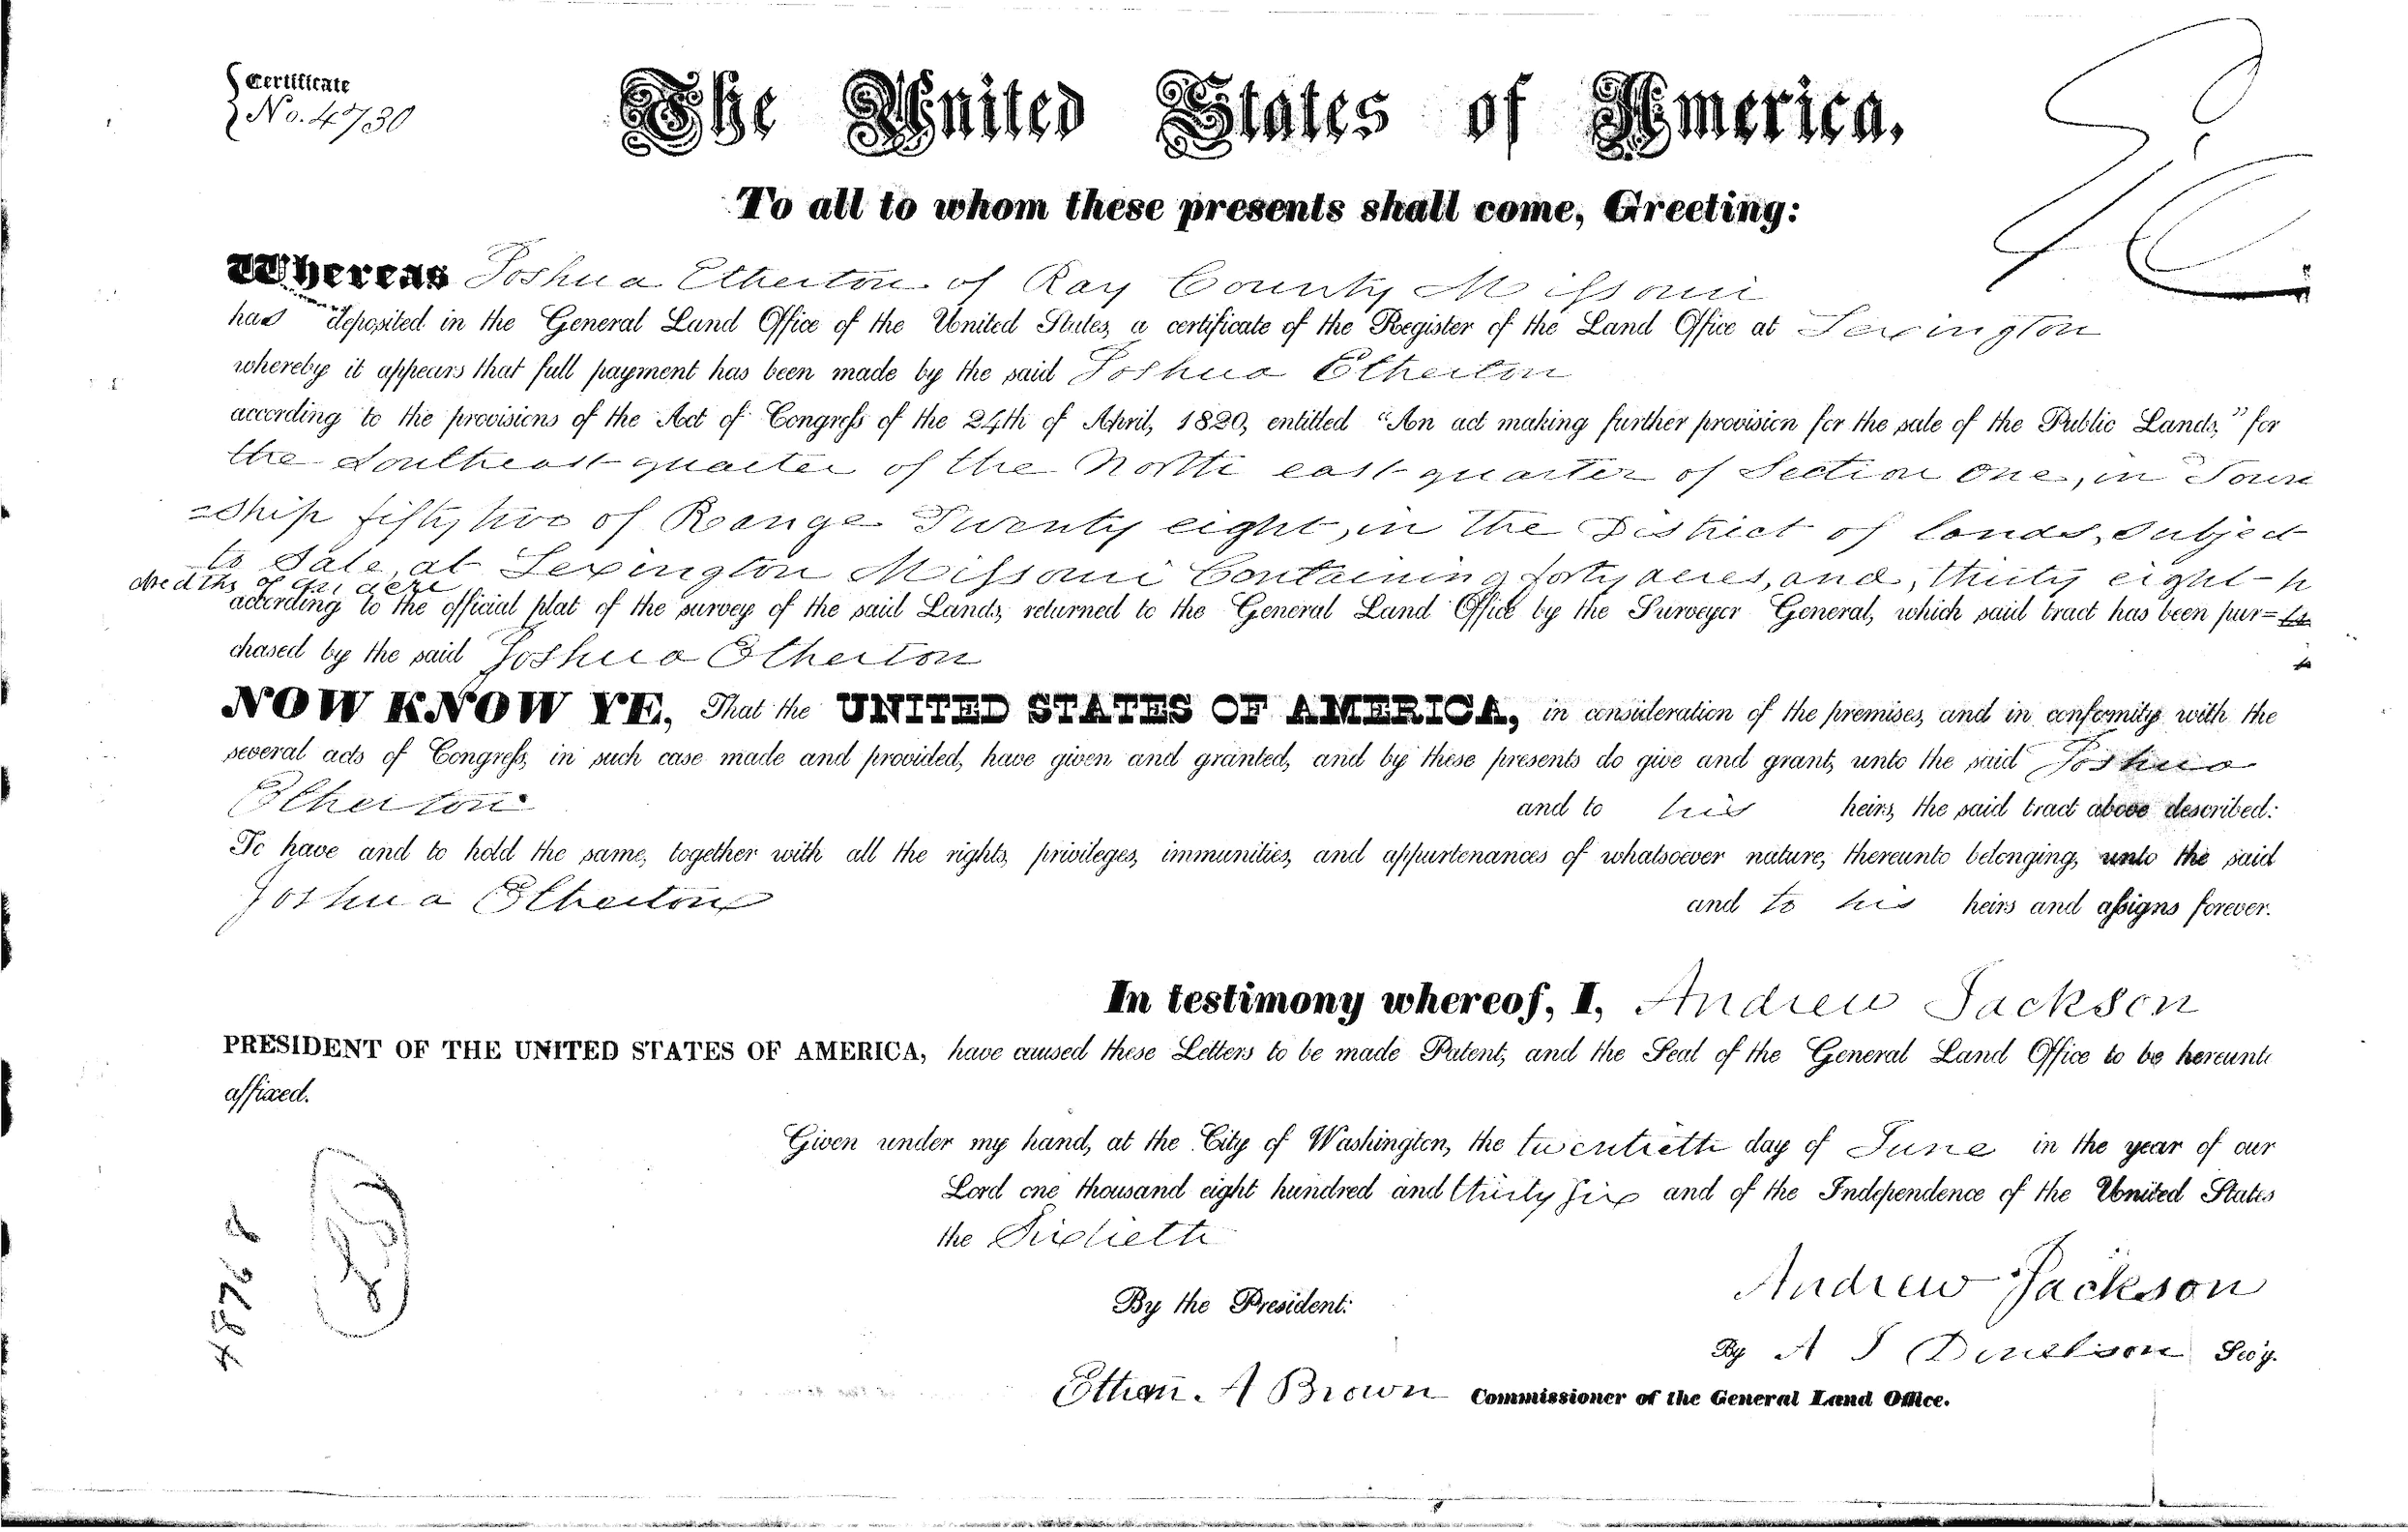 Certificate
No. 4730
The United States of America,
To all to whom these presents shall come, Greeting:
Whereas Joshua Etherton of Ray County Missouri
has deposited in the General Land Office of the United States, a certificate of the Register of the Land Office at Lexington
whereby it appears that full payment has been made by the said Joshua Etherton
according to the provisions of the Act of Congress of the 24th of April, 1820, entitled "An act making further provision for the sale of the Public Lands," for
the Southeast quarter of the North east quarter of Section one, in Town
=ship fifty two of Range Twenty eight, in the District of lands, subject
to Sale, at Lexington Missouri Containing forty acres, and, thirty eight-h
dredths of an acre
according to the official plat of the survey of the said Lands, returned to the General Land Office by the Surveyor General, which said tract has been pur=
chased by the said Joshua Etherton
NOW KNOW YE, That the UNITED STATES OF AMERICA, in consideration of the premises, and in conformity with the
several acts of Congress, in such case made and provided, have given and granted, and by these presents do give and grant, unto the said Joshua
Etherton and to his heirs, the said tract above described:
To have and to hold the same, together with all the rights, privileges, immunities, and appurtenances of whatsoever nature, thereunto belonging, unto the said
Joshua Etherton and to his heirs and assigns forever.
In testimony whereof, I, Andrew Jackson
PRESIDENT OF THE UNITED STATES OF AMERICA, have caused these Letters to be made Patent, and the Seal of the General Land Office to be hereunto
affixed.
Given under my hand, at the City of Washington, the twentieth day of June in the year of our
Lord one thousand eight hundred and thirty six and of the Independence of the United States
the Sixtieth
By the President: Andrew Jackson
By A J Donelson Sec'y.
Ethan. A Brown Commissioner of the General Land Office.